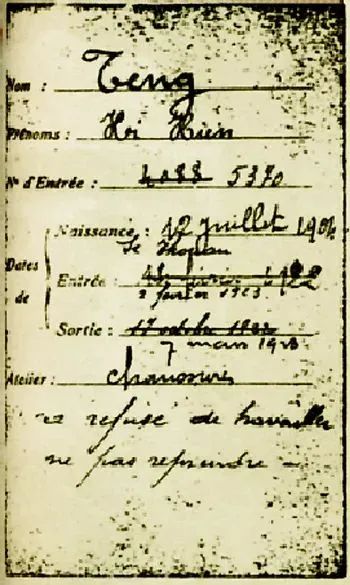 Nom : Teng
Prénoms : Hi Hien
N° d'Entrée : 5370
Naissance : 12 juillet 190
Se Tchouan
Dates de
Entrée :
2 février 1923
Sortie : 17 octobre 1922
7 mars 1923
Atelier : chaussures
a refusé de travailler
ne pas reprendre –